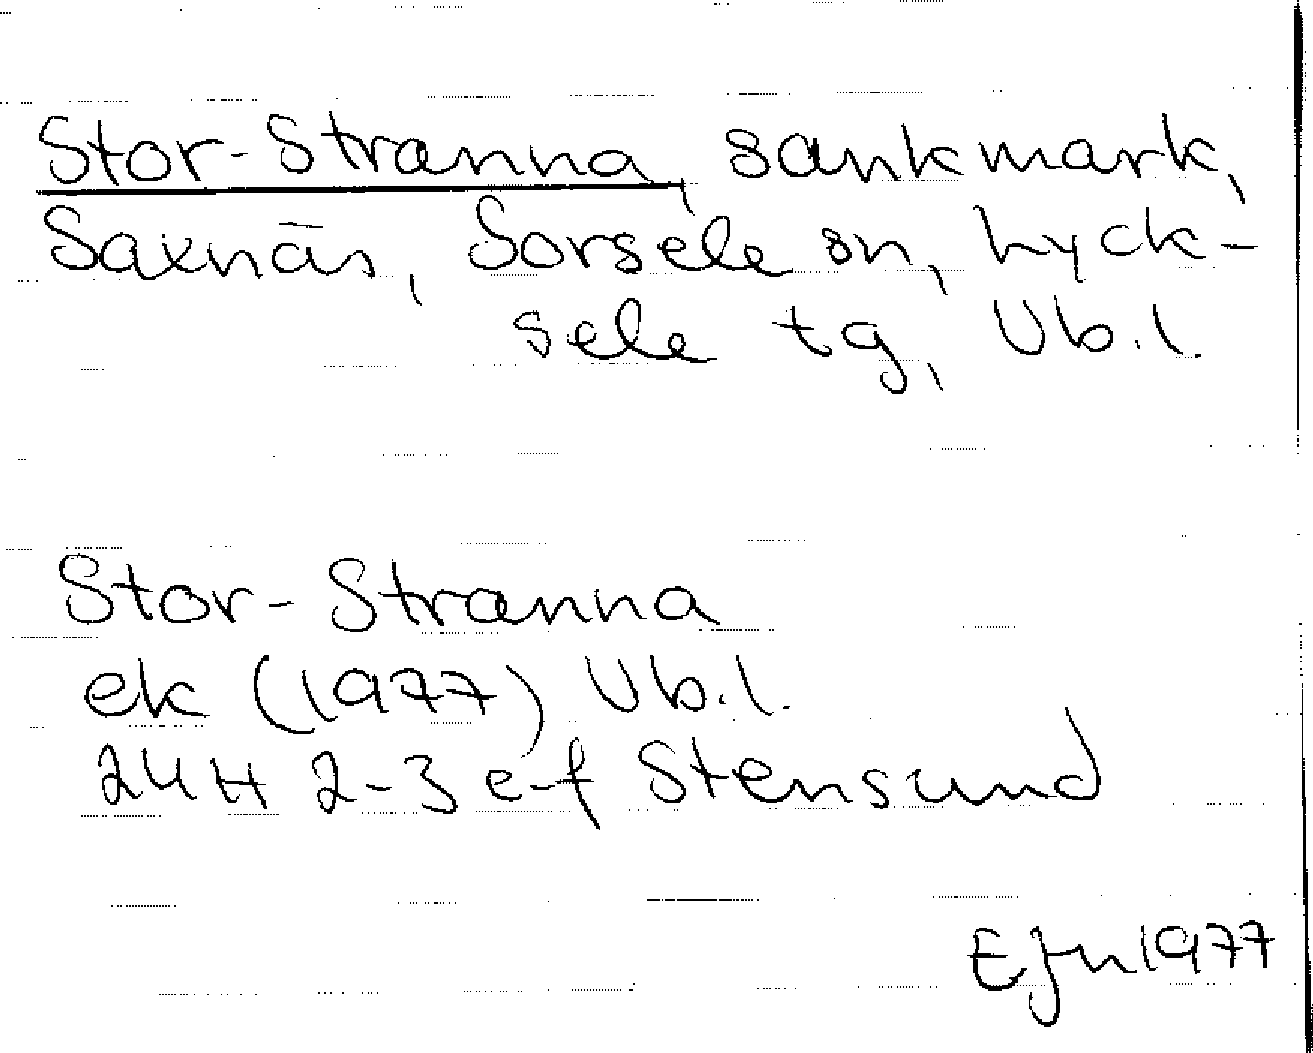 Stor-Stranna, sankmark,
Saxnäs, Sorsele sn, Lyck-
sele tg, Vb.l.
Stor-Stranna
ek (1977) Vb.l.
24H 2-3 e-f Stensund
EJn 1977